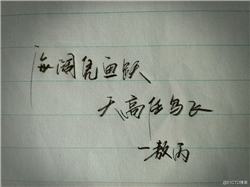 海阔凭鱼跃
天高任鸟飞
一敖丙
@51CTO博客